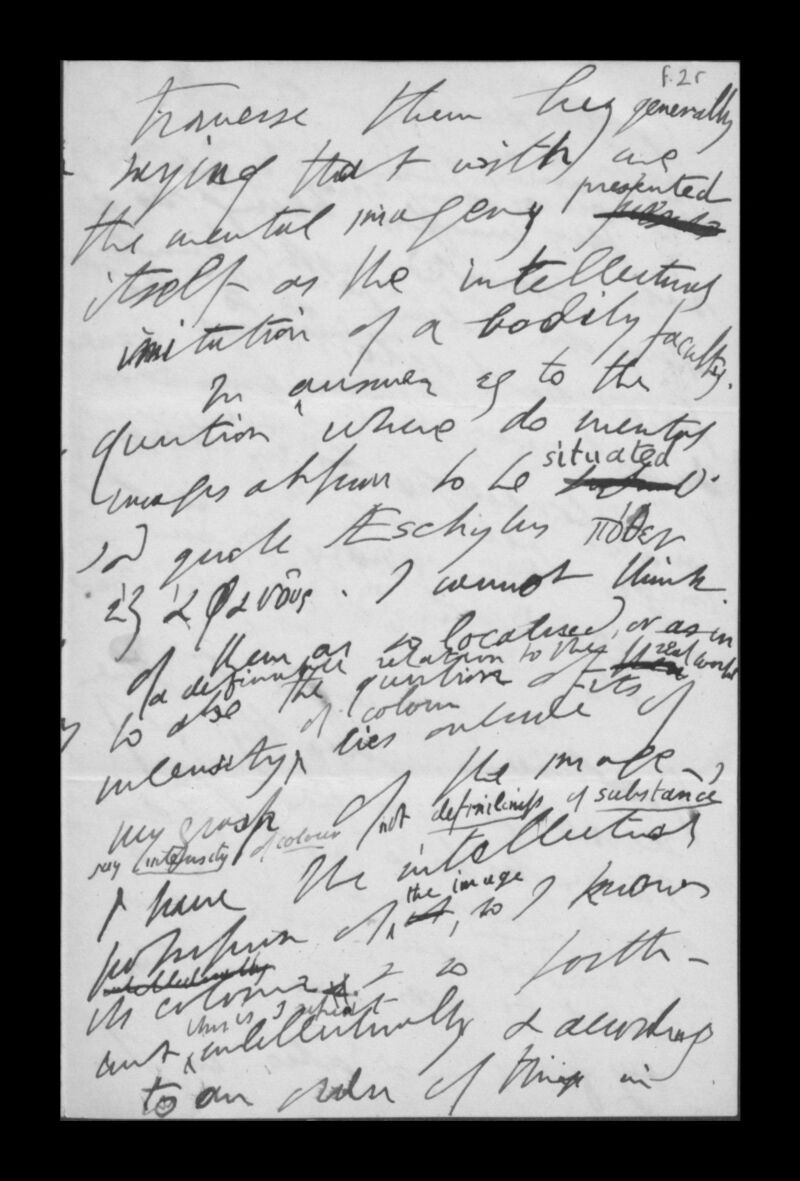 f. 2r
traverse them by generally
saying that with me
the mental imagery presented
itself as the intellectual
imitation of a bodily faculty.
In answer eg to the
question "where do mental
images appear to be situated"
I'd quote Æschylus πόθεν
ἐξ ἀφανοῦς. I cannot think
of them as so localised, or as in
a definable relation to this real world
to also the question of its
intensity of colour lies outside of
my grasp of the image,
say intensity of colour not definiteness of substance
I have the intellectual
possession of the image, so I know
its colour & so forth –
but this is I repeat intellectually & according
to an order of things in